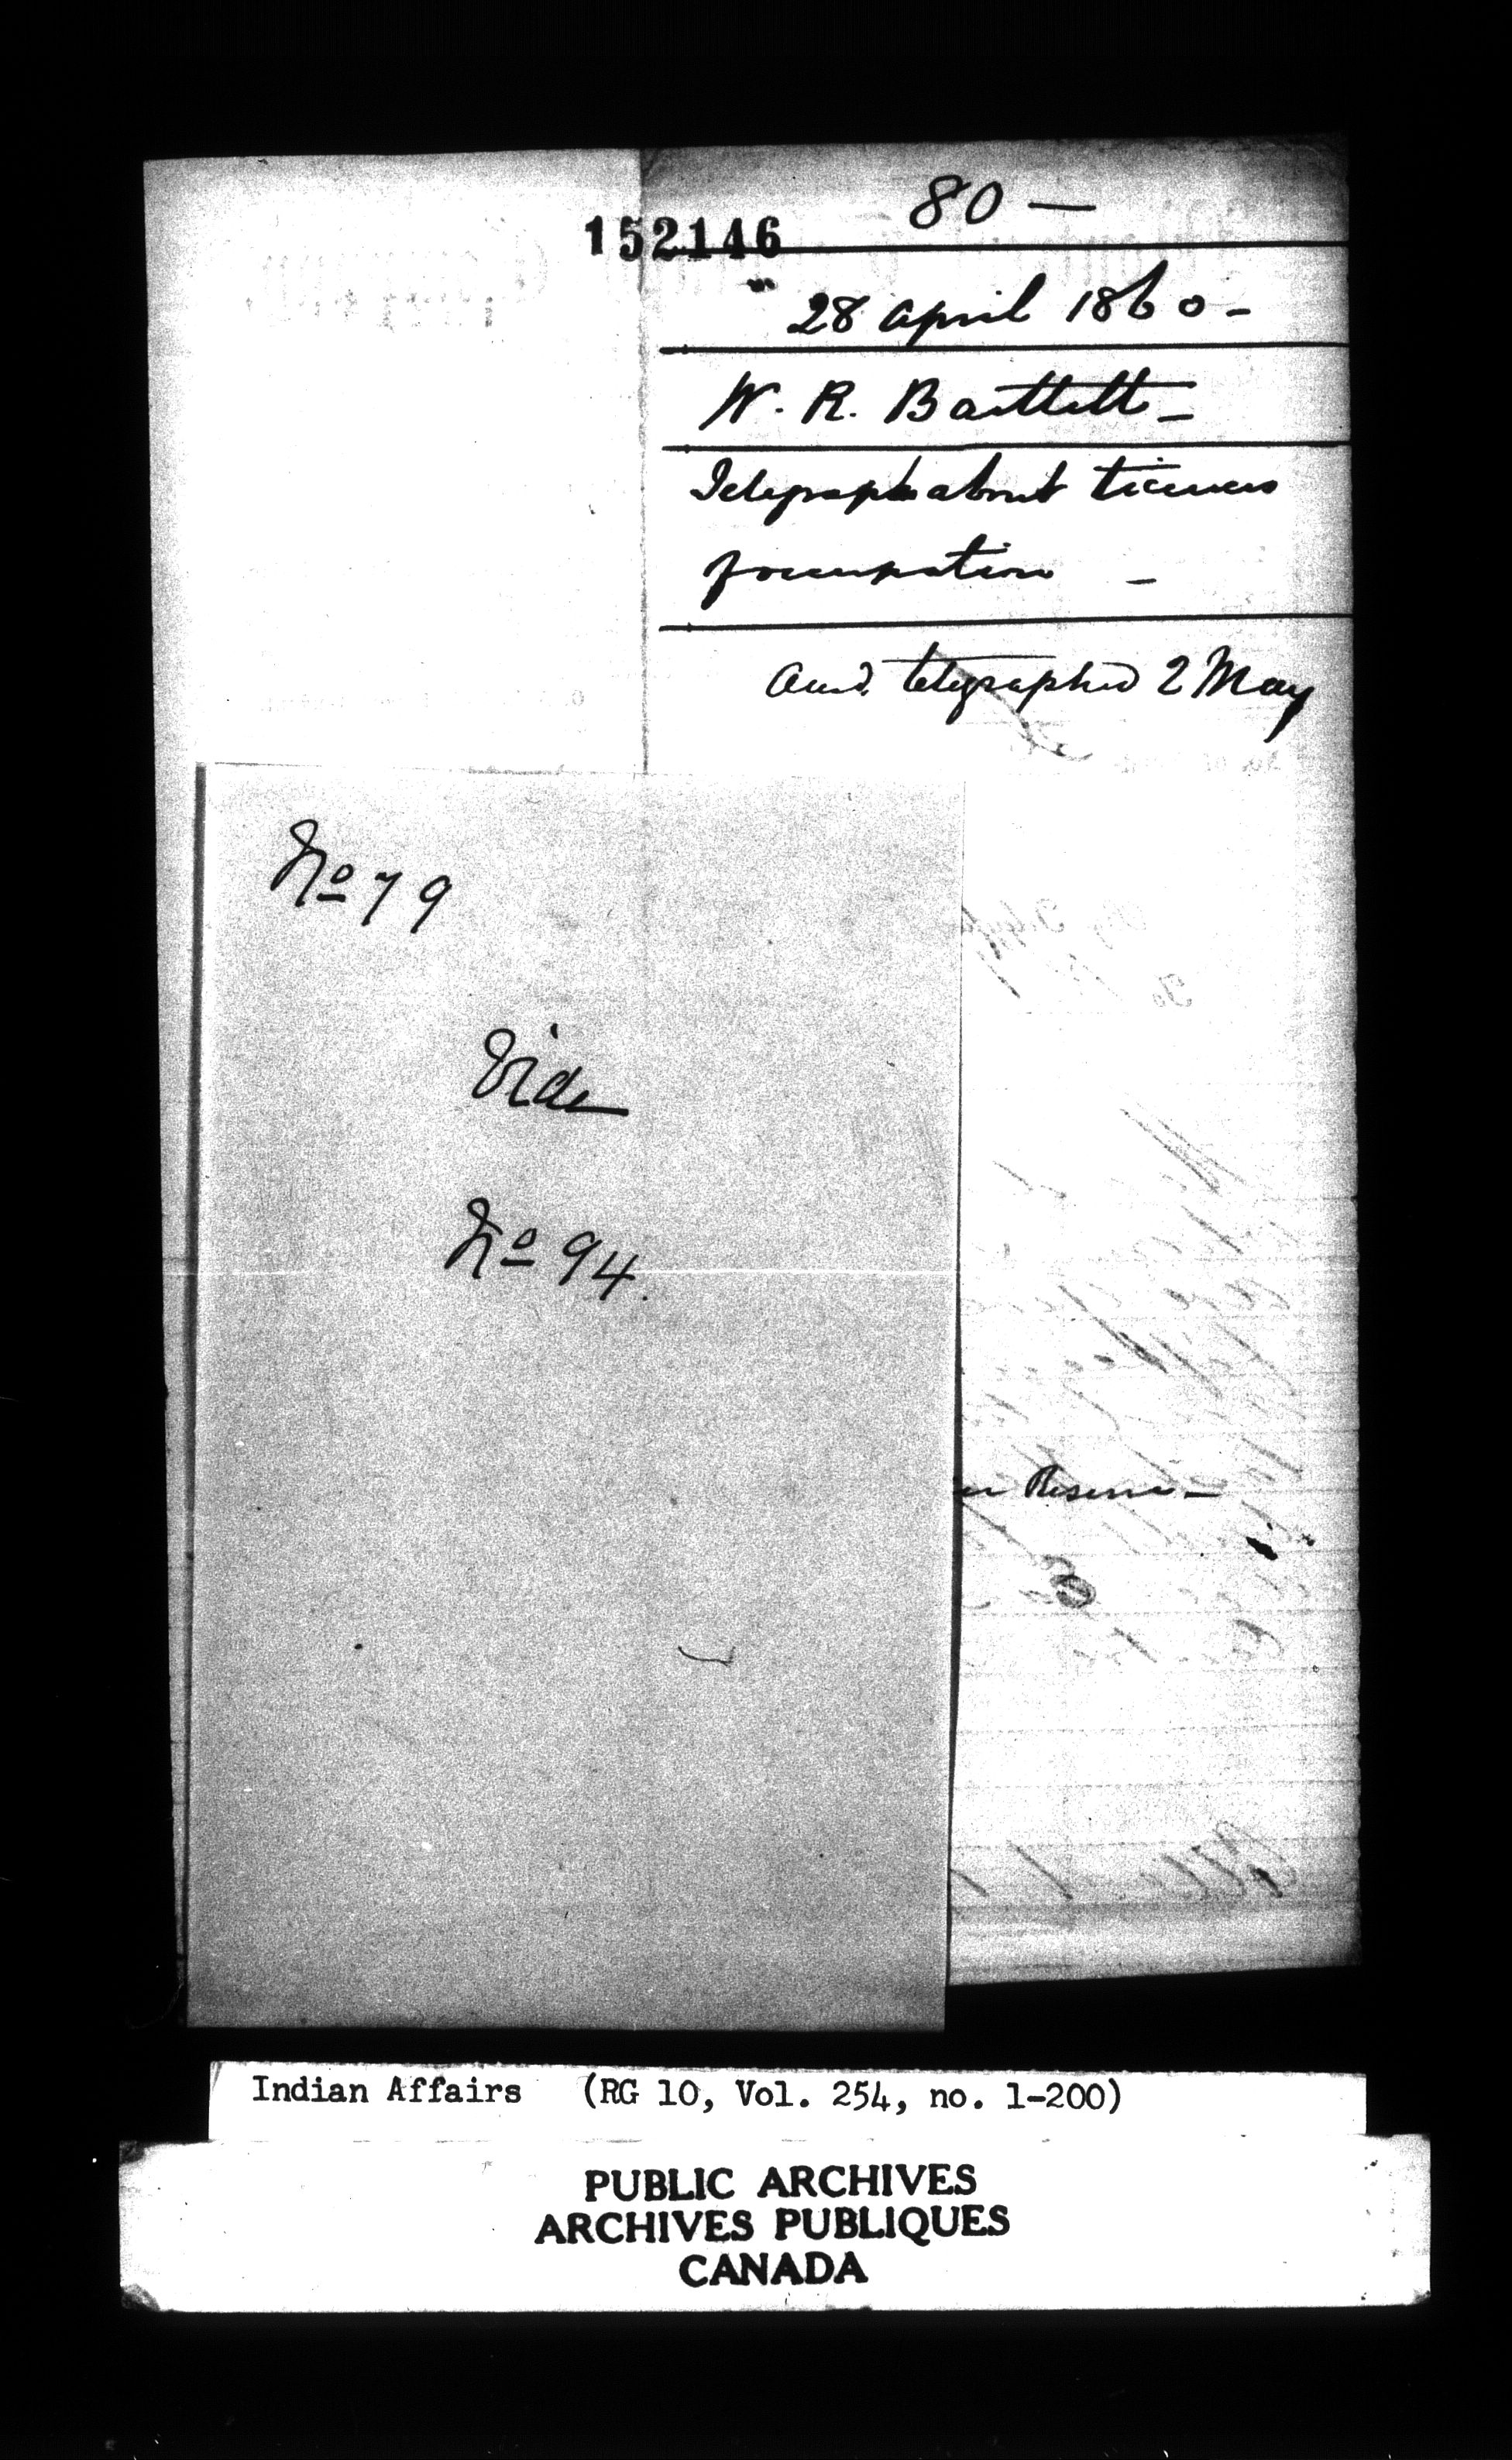 80 —
152146
28 April 1860 -
W. R. Bartlett -
Telegraph about licenses
of occupation -
Ansd. telegraphed 2 May
No 79
Vide
No 94.
Reserve -
Indian Affairs (RG 10, Vol. 254, no. 1-200)
PUBLIC ARCHIVES
ARCHIVES PUBLIQUES
CANADA